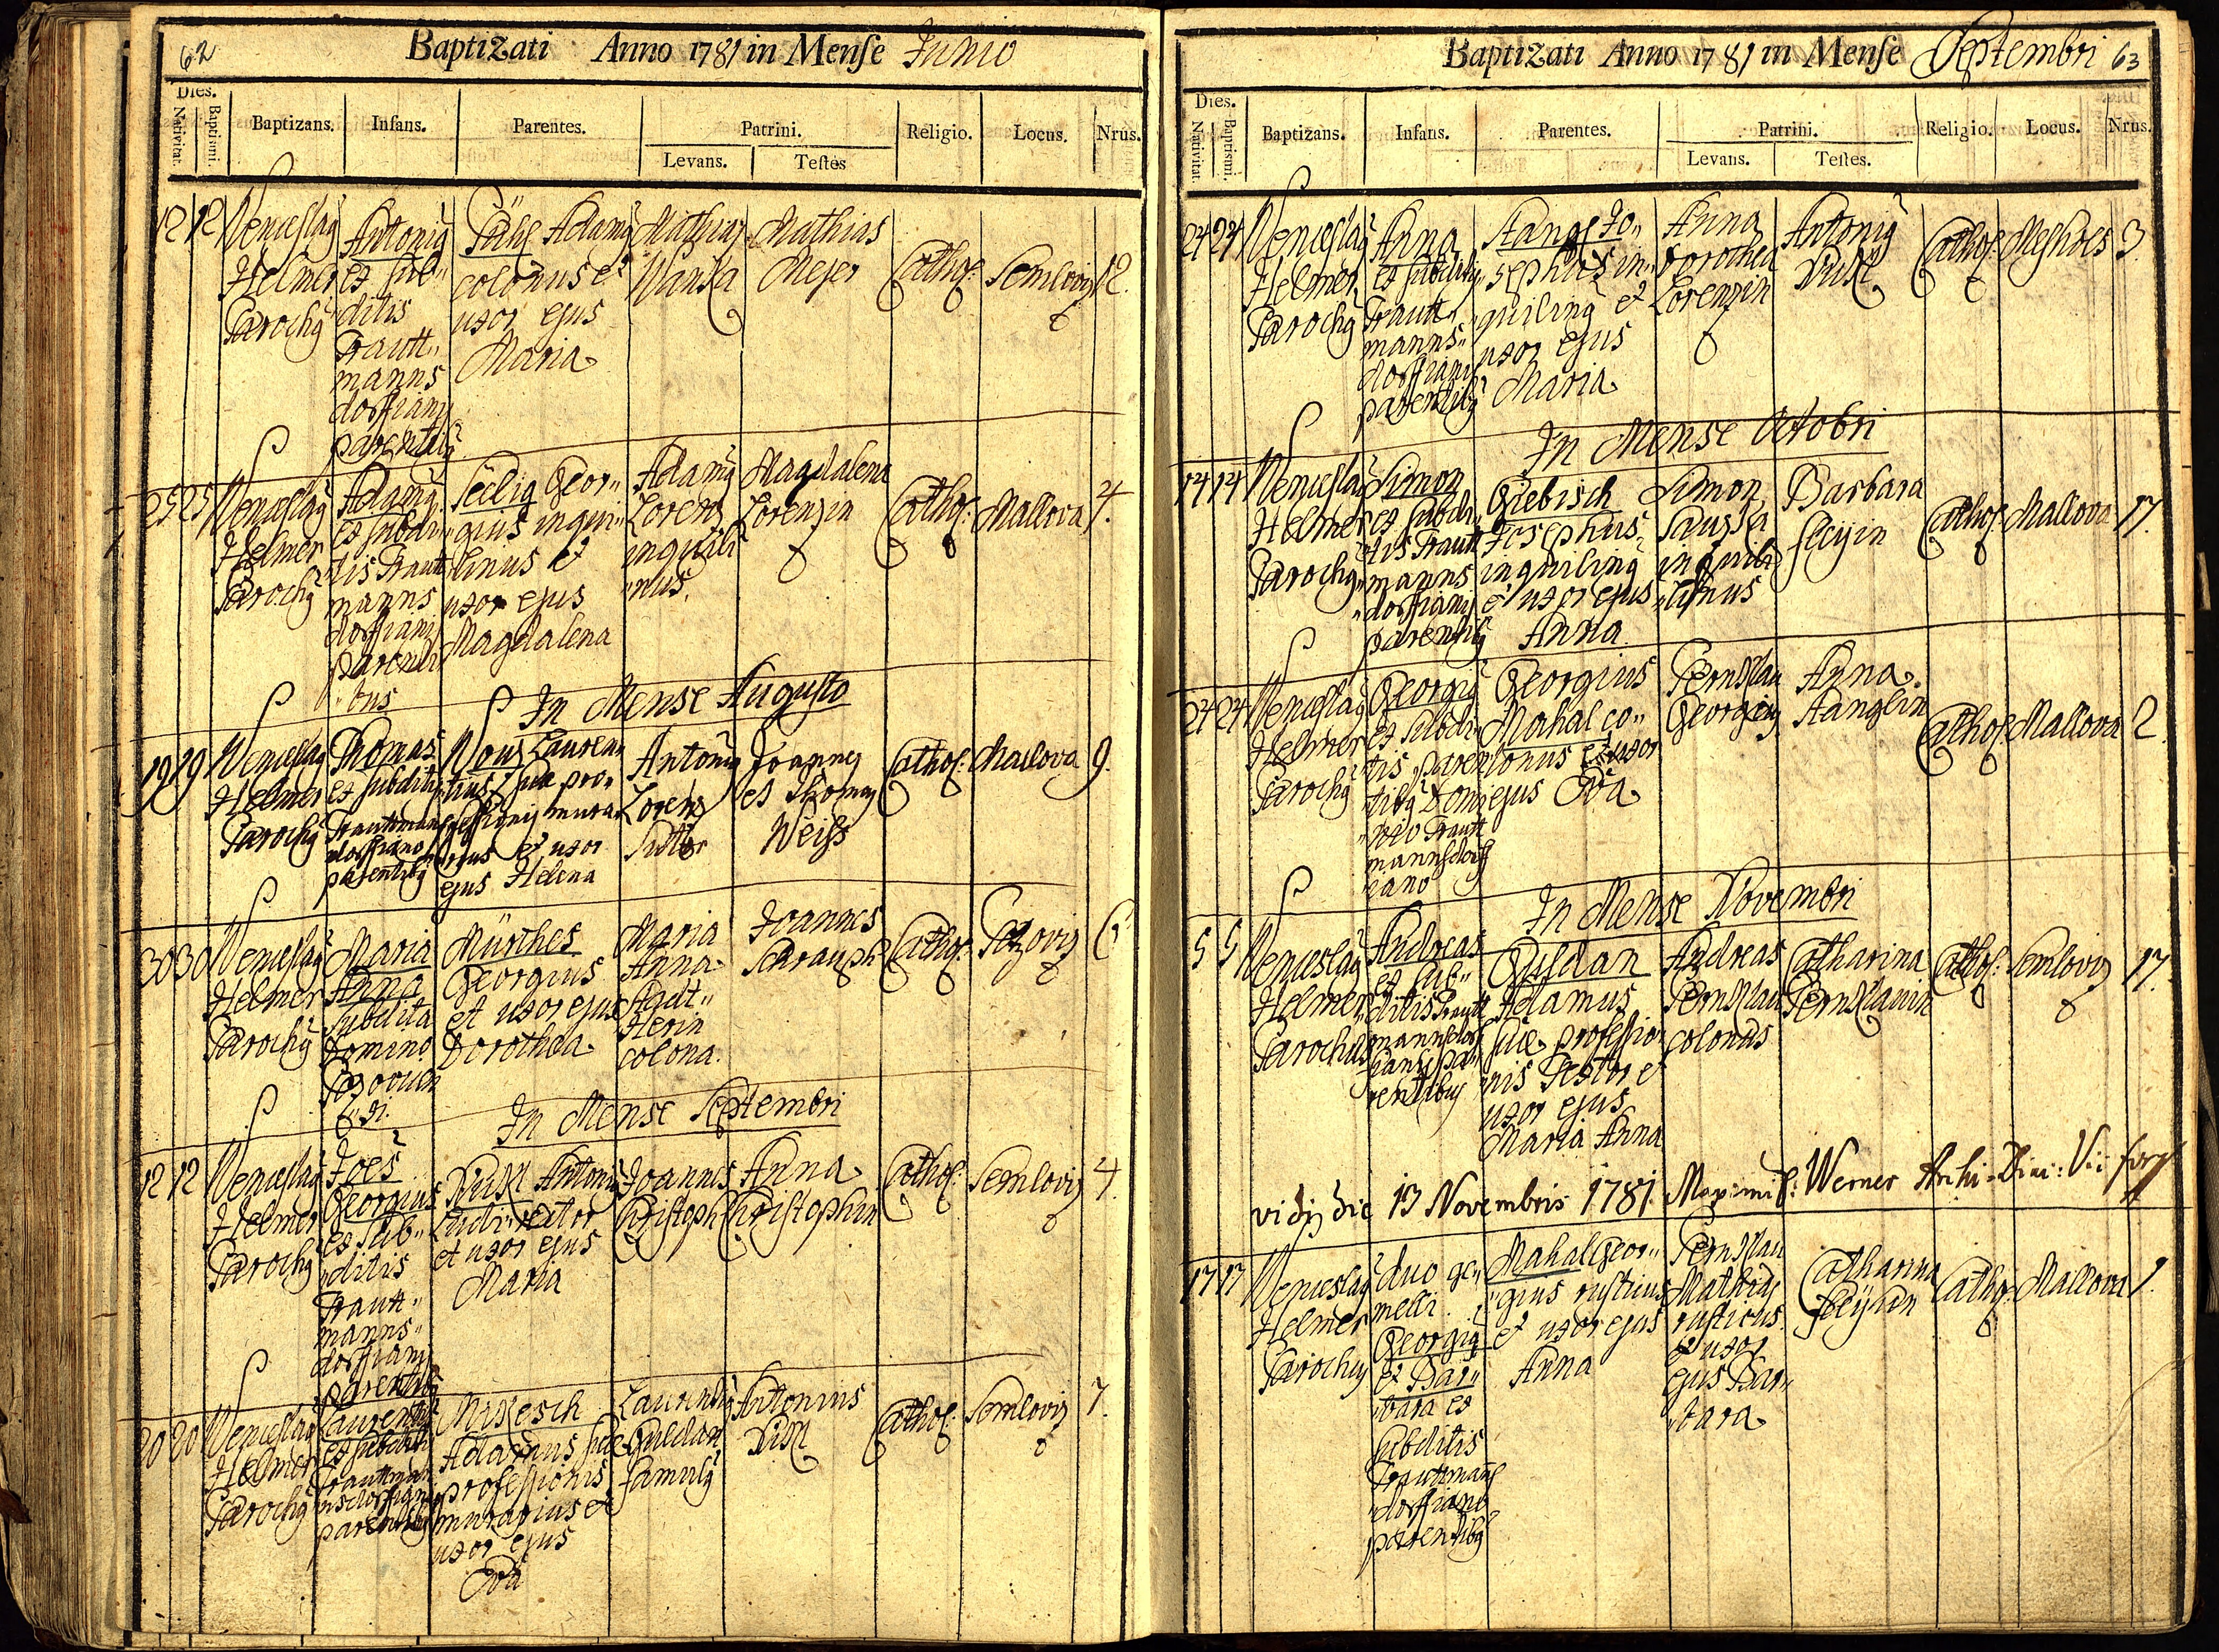 62
Baptizati Anno 1781 in Mense Junio
Dies.
Nativitat.
Baptismi.
Baptizans.
Infans.
Parentes.
Patrini.
Levans.
Testes
Religio.
Locus.
Nrus.
12 12
Wenceslaus
Helmer
Parochus
Antonius
et sub„
ditis
Trautt„
manns
dorffianis
parentibus
Adamus
colonus et
uxor ejus
Maria
Mathias
Wanka
Mathias
Mejer
Cathol:
Semloviz
12.
25 25
Wenceslaus
Helmer
Parochus
Adamus
et subdi„
tis Trautt
manns
dorffianis
parenti
„bus
Seelig Geor„
gius inqui„
linus et
uxor ejus
Magdalena
Adamus
Lorenz
inquili
„nus.
Magdalena
Lorenzin
Cathol:
Mallova
4.
In Mense Augusto
19 19
Wenceslaus
Helmer
Parochus
Thomas
et subditis
Trauttmans
dorffiano
parentibus
Laurens
tius suæ pro„
fessionis mura
rius et uxor
ejus Helena
Antonius
Lorenz
Sutor
Joannes
et Thomas
Weiss
Cathol:
Mallova
9.
30 30
Wenceslaus
Helmer
Parochus
Maria
Anna
subdita
Domino
Mürthes
Georgius
et uxor ejus
Dorothea
Maria
Anna
Stadt„
lerin
colona.
Joannes
Schrauph
Cathol:
6
In Mense Septembri
12 12
Wenceslaus
Helmer
Parochus
Joes
Georgius
et sub„
„ditis
Trautt„
manns„
dorffianis
parentibus
Pukl Antonius
Ludi rector
et uxor ejus
Maria
Joannes
Christoph
Anna
Christophin
Cathol:
Semloviz
4.
20 20
Wenceslaus
Helmer
Parochus
Laurentius
et subditis
Trauttman
nsdorffianis
parentibus
Mikesch
Adamus suæ
professionis
murarius et
uxor ejus
Eva
Laurentius
Guldan
famulus
Antonius
Pukl
Cathol:
Semloviz
7.
Baptizati Anno 1781 in Mense Septembri 63
Dies.
Nativitat.
Baptismi.
Baptizans.
Infans.
Parentes.
Patrini.
Levans.
Testes.
Religio.
Locus.
Nrus.
24 24
Wenceslaus
Helmer
Parochus
Anna
et subditis
Trautt„
manns„
dorffianis
parentibus
Stangl Jo„
sephus in„
quilinus et
uxor ejus
Maria
Anna
Dorothea
Lorenzin
Antonius
Pukl
Cathol:
Mesholz
3.
In Mense Octobri
14 14
Wenceslaus
Helmer
Parochus
Simon
et subdi„
tis Trautt
manns
„dorffianis
parentibus
Giebisch
Josephus
inquilinus
et uxor ejus
Anna
Simon
inquili
„nus
Barbara
Cathol:
Mallova
17.
24 24
Wenceslaus
Helmer
Parochus
Georgius
et subdi„
tis paren
tibus Domi
„nio Trautt
mannsdorff
iano
Georgius
Mahal co„
lonus et uxor
ejus Eva
Pernklau
Georgius
Anna
Stanglin
Cathol:
Mallova
2
In Mense Novembri
5 5
Wenceslaus
Helmer
Parochus
Andreas
et sub„
ditis Trautt
mannsdorf
fianis pa„
rentibus
Guldan
Adamus
suæ professio
nis Textor et
uxor ejus
Maria Anna
Andreas
Pernklau
colonus
Catharina
Pernklauin
Cathol:
Semloviz
17.
vidi die 13 Novembris 1781. Maximil: Werner Archi-Diac: Vic: for:
17 17
Wenceslaus
Helmer
Parochus
duo ge„
melli
Georgius
et Bar„
bara et
subditis
Trauttmans
„dorffiano
parentibus
Mahal Geor„
„gius rusticus
et uxor ejus
Anna
Pernklau
Mathias
rusticus
et uxor
ejus Bar„
bara
Catharina
Cathol:
Mallova